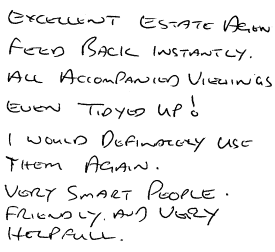 EXCELLENT ESTATE AGEN
FEED BACK INSTANTLY.
ALL ACCOMPANIED VIEWINGS
EVEN TIDYED UP!
I WOULD DEFINATELY USE
THEM AGAIN.
VERY SMART PEOPLE.
FRIENDLY, AND VERY
HELPFULL.